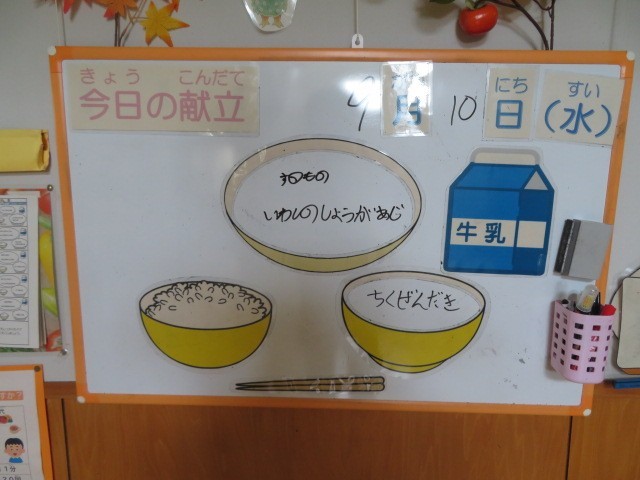 きょう こんだて
今日の献立
9月10日(水)
にち すい
すのもの
いわしのしょうがあじ
牛乳
ちくぜんだき